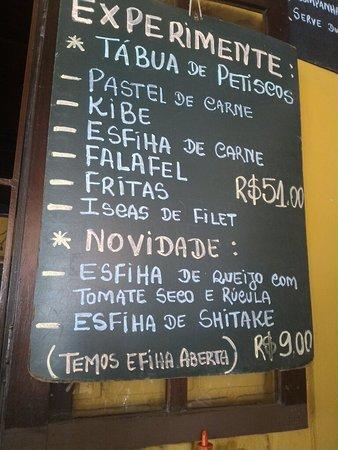 EXPERIMENTE:
* TÁBUA DE PETISCOS
- PASTEL DE CARNE
- KIBE
- ESFIHA DE CARNE
- FALAFEL
- FRITAS R$51.00
- ISCAS DE FILET
* NOVIDADE:
- ESFIHA DE QUEIJO COM
TOMATE SECO E RÚCULA
- ESFIHA DE SHITAKE
(TEMOS EFIHA ABERTA) R$9.00
SERVE